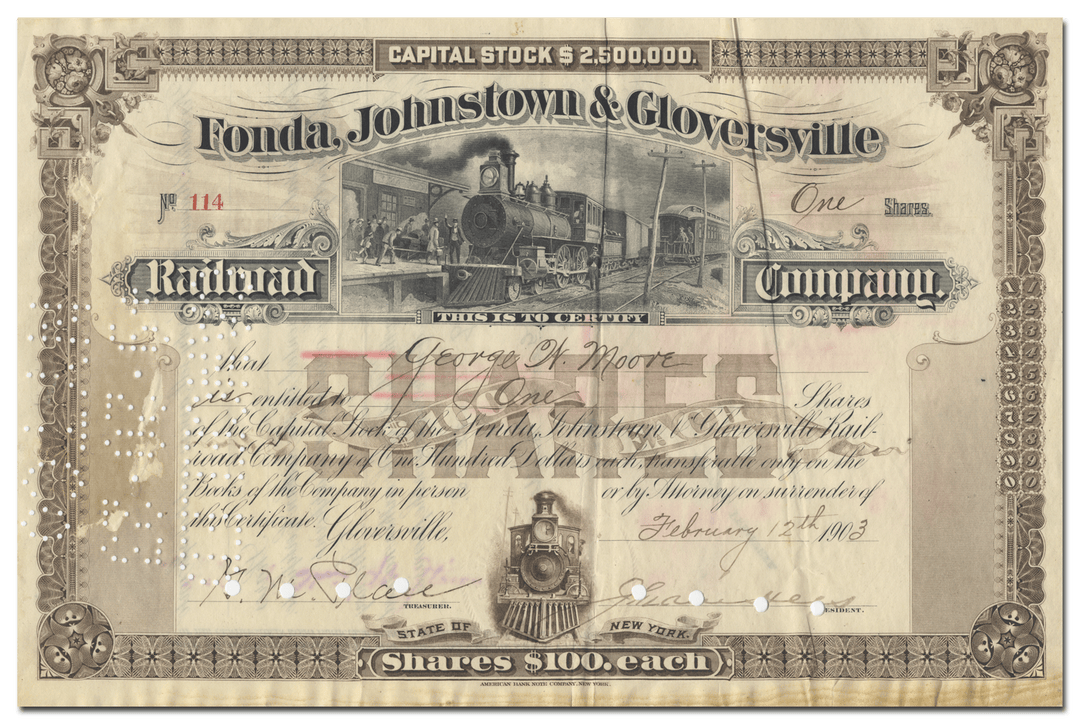 CAPITAL STOCK $ 2,500,000.
Fonda, Johnstown & Gloversville
No 114
One Shares
Railroad Company.
THIS IS TO CERTIFY
that George W. Moore
is entitled to One Shares
of the Capital Stock of the Fonda, Johnstown & Gloversville Rail-
road Company of One Hundred Dollars each, transferable only on the
Books of the Company in person or by Attorney on surrender of
this Certificate. Gloversville, February 12th 1903
TREASURER.
ESIDENT.
STATE OF NEW YORK.
Shares $100. each
AMERICAN BANK NOTE COMPANY, NEW YORK.